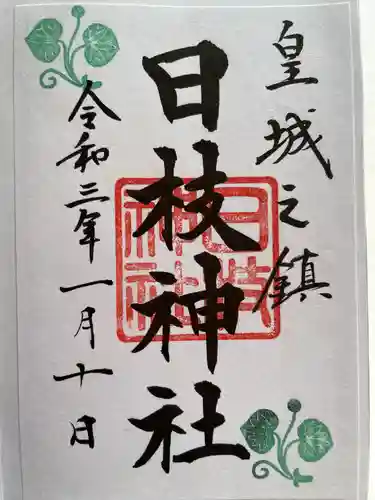 皇城之鎮
日枝神社
令和三年一月十日
日枝神社